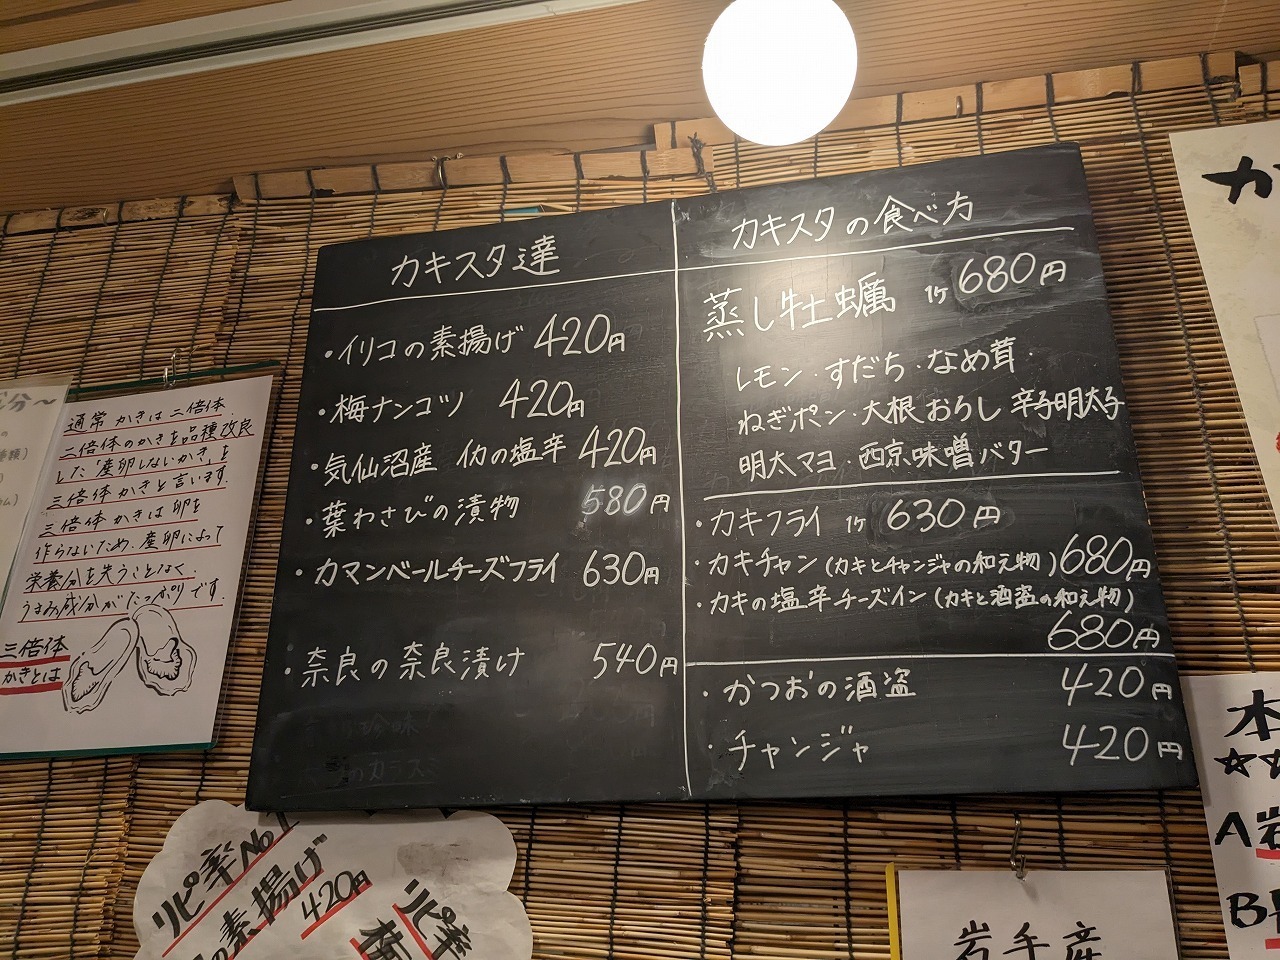 通常 かきは二倍体.
二倍体のかきを品種改良
した「産卵しないかき」を
三倍体かきと言います.
三倍体かきは卵を
作らないため、産卵によって
栄養分を失うことなく、
うまみ成分がたっぷりです
三倍体
かきとは
カキスタ達
・イリコの素揚げ 420円
・梅ナンコツ 420円
・気仙沼産 イカの塩辛 420円
・葉わさびの漬物 580円
・カマンベールチーズフライ 630円
・奈良の奈良漬け 540円
珍味
のカラスミ
カキスタの食べ方
蒸し牡蠣 1ケ 680円
レモン・すだち・なめ茸・
ねぎポン・大根おろし 辛子明太子
明太マヨ・西京味噌バター
・カキフライ 1ケ 630円
・カキチャン(カキとチャンジャの和え物) 680円
・カキの塩辛チーズイン(カキと酒盗の和え物)
680円
・かつおの酒盗 420円
・チャンジャ 420円
リピ率No1
の素揚げ
420円
リピ率
梅
岩手産
カ
本
☆☆
A岩
B